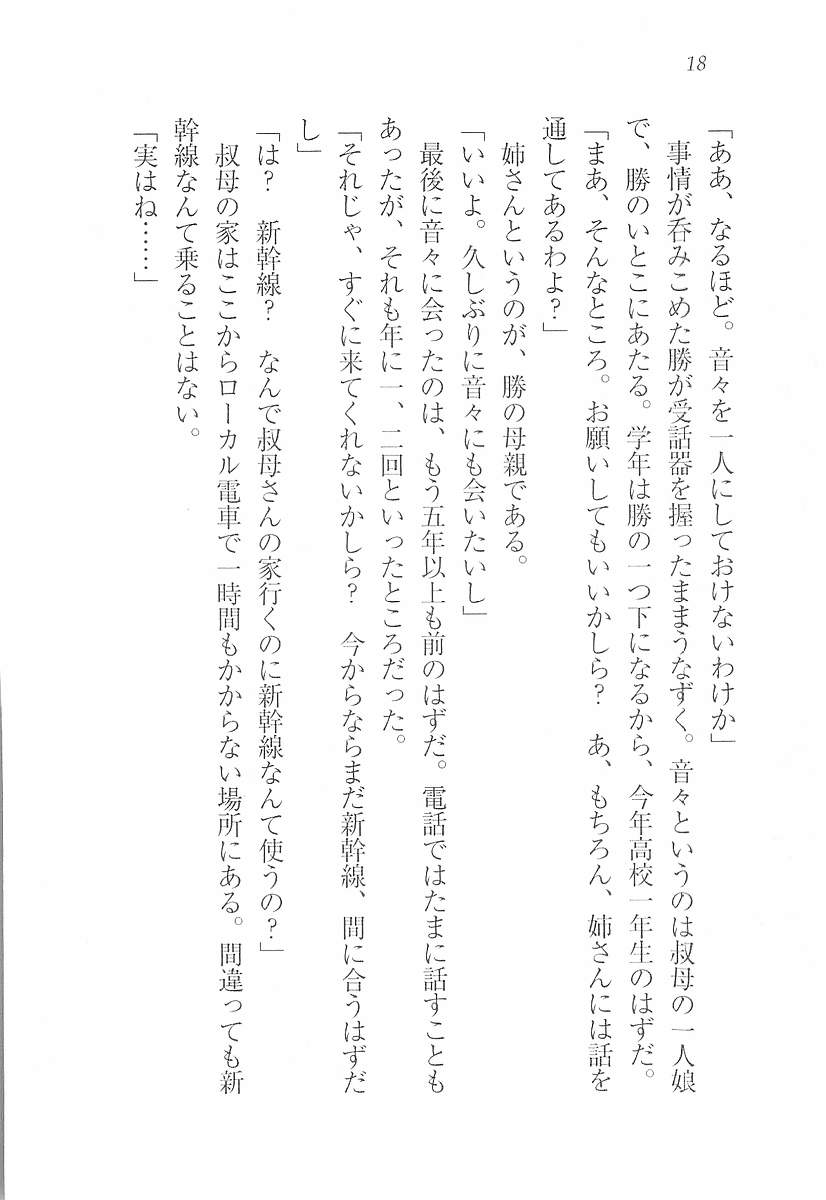 18
「ああ、なるほど。音々を一人にしておけないわけか」
　事情が呑みこめた勝が受話器を握ったままうなずく。音々というのは叔母の一人娘
で、勝のいとこにあたる。学年は勝の一つ下になるから、今年高校一年生のはずだ。
「まあ、そんなところ。お願いしてもいいかしら？　あ、もちろん、姉さんには話を
通してあるわよ？」
　姉さんというのが、勝の母親である。
「いいよ。久しぶりに音々にも会いたいし」
　最後に音々に会ったのは、もう五年以上も前のはずだ。電話ではたまに話すことも
あったが、それも年に一、二回といったところだった。
「それじゃ、すぐに来てくれないかしら？　今からならまだ新幹線、間に合うはずだ
し」
「は？　新幹線？　なんで叔母さんの家行くのに新幹線なんて使うの？」
　叔母の家はここからローカル電車で一時間もかからない場所にある。間違っても新
幹線なんて乗ることはない。
「実はね……」